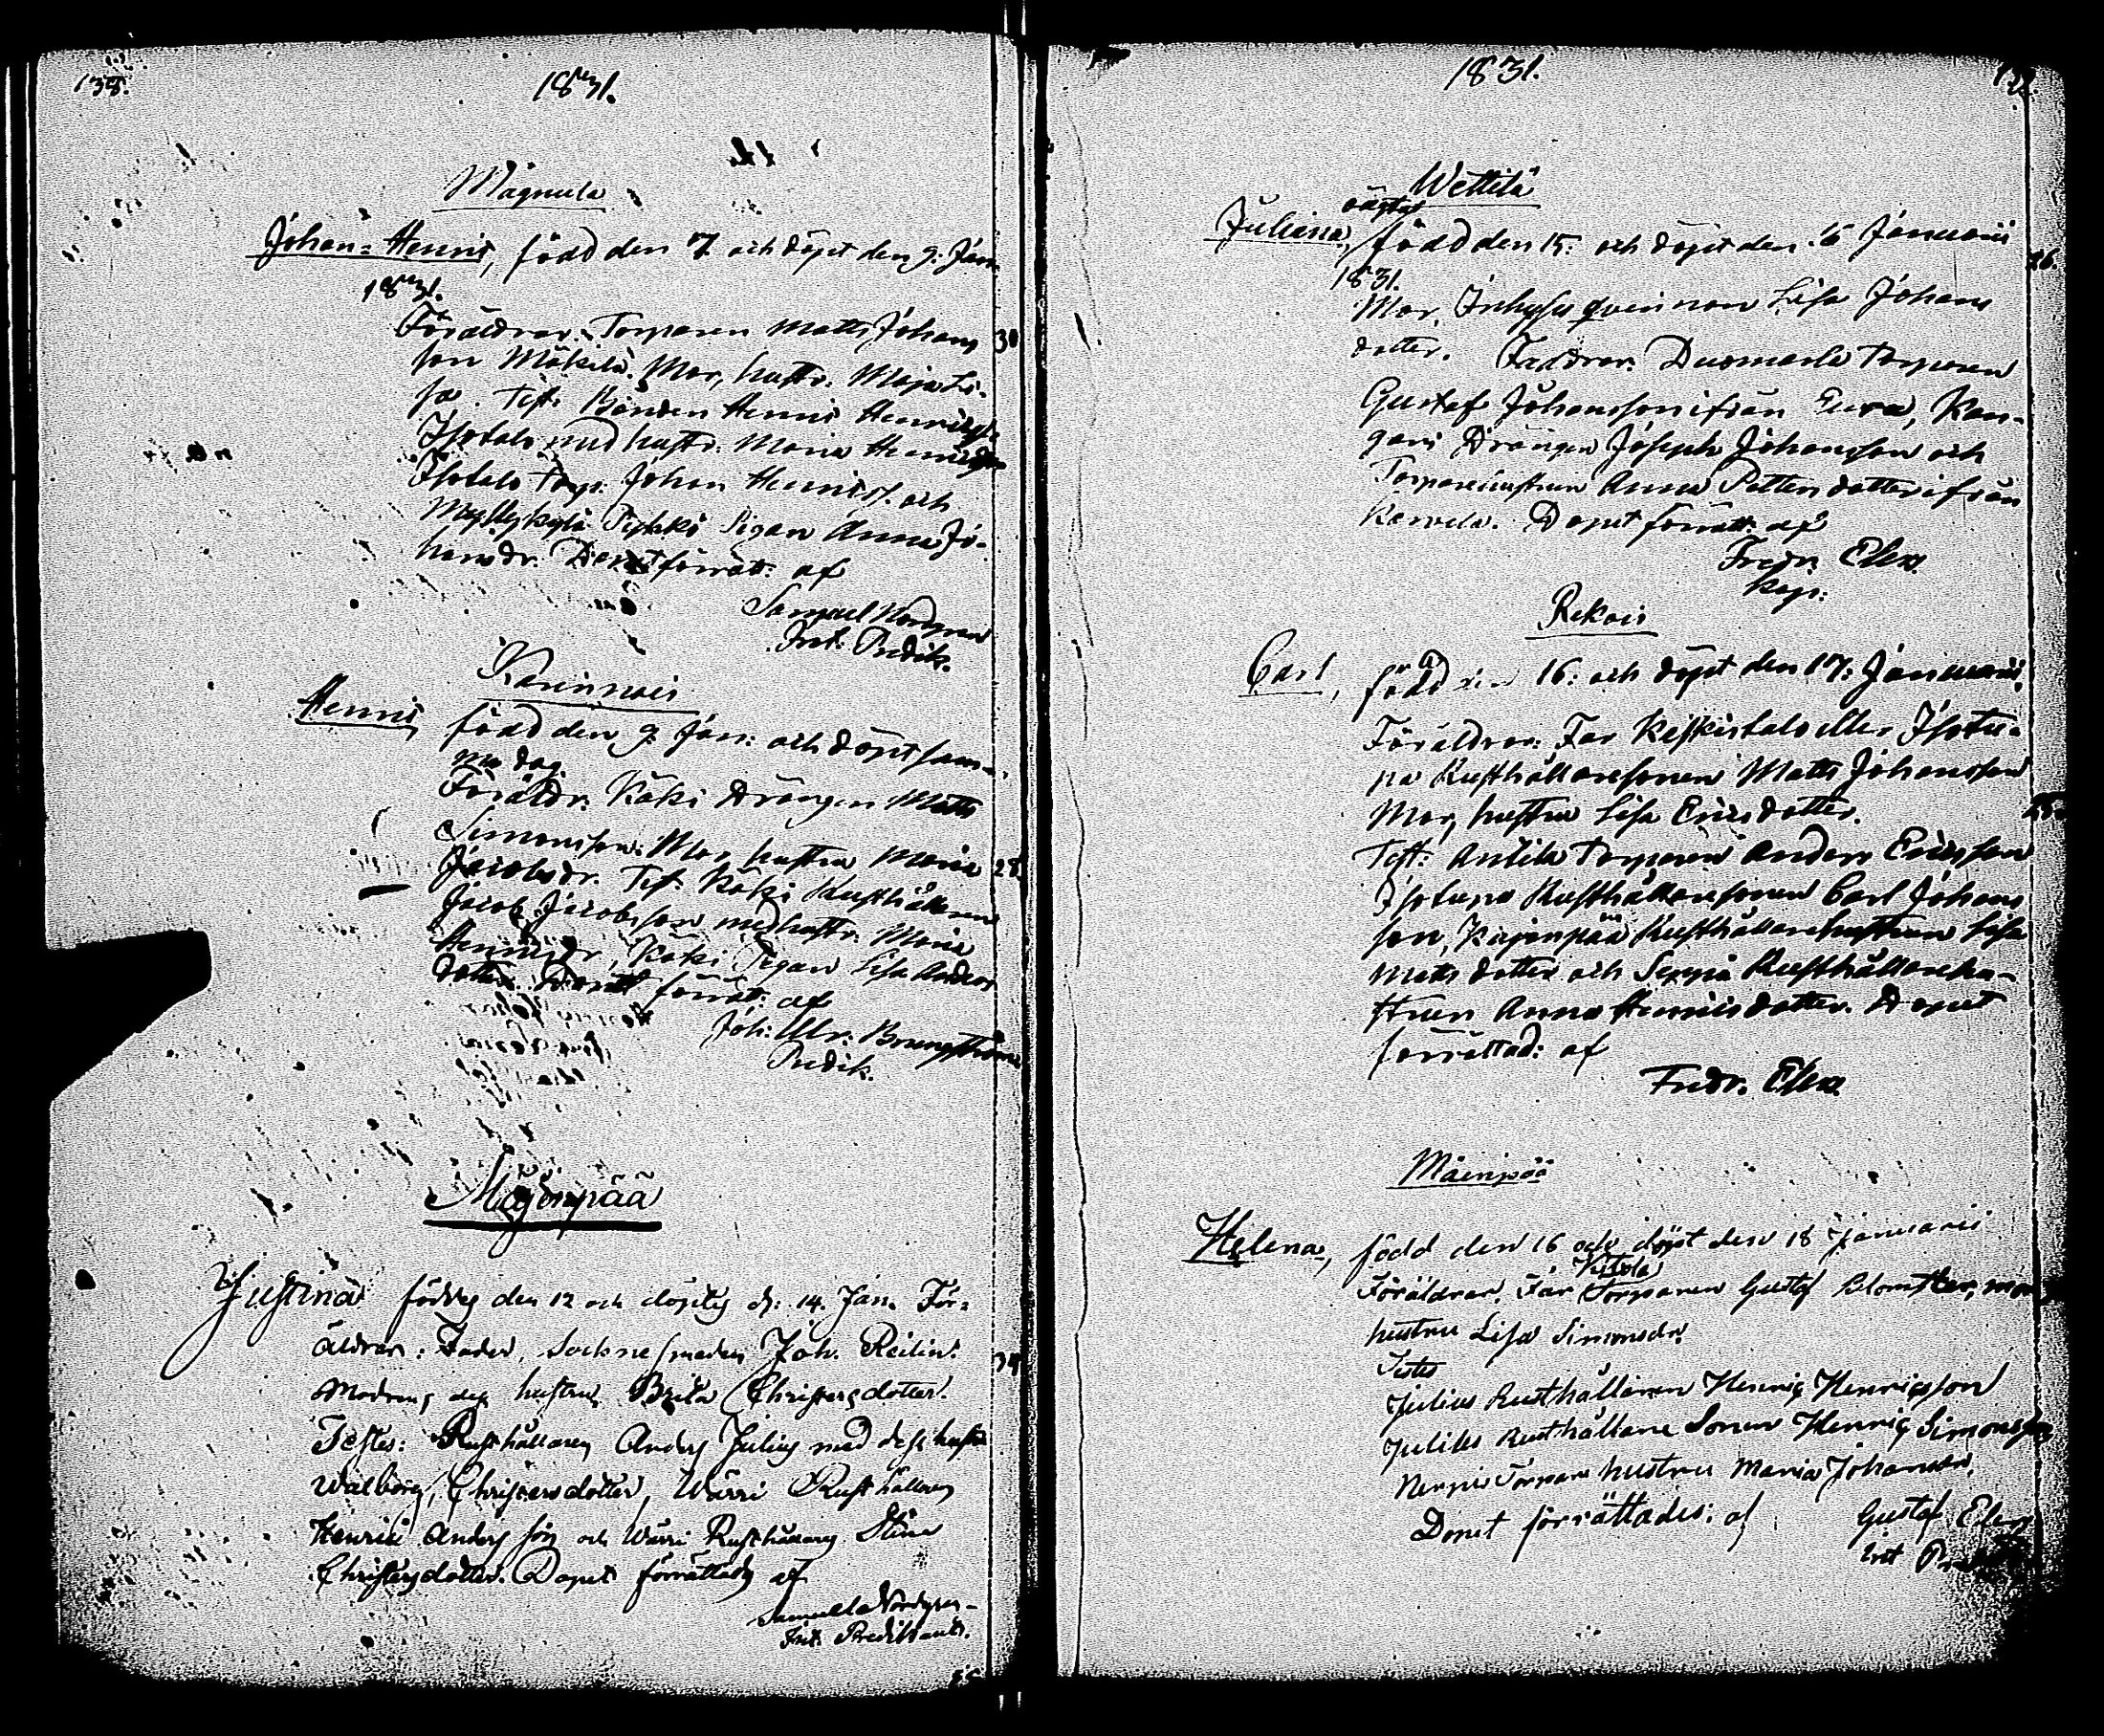 138.
1831.
Mägnula
Johan = Henric, född den 7. och döpt den 9. Jan:
1831.
Föräldrar. Torparen Matts Johans
son Mäkilä. Mor, hustr. Maja Li-
sa. Test. Bonden Henric Henricss.
Isotalo med hustr. Maria Henricsdr
Isotalo Torp. Johan Henricss. och
Myllykylä Pigan Anna Jo-
hansdr. Dopet förrätt: af
Samuel Nordgren
Inst. Predik.
30
Karinnais
Henric, född den 9. Jan: och döpt sam-
ma dag.
Föräldr. Käki Drängen Matts
Simonsson. Mor, hustru Maria
Jacobsdr. Test. Käki Rusthållaren
Jacob Jacobsson med hustr. Maria
Henricsdr, Käki Pigan Lisa Anders
dotter. Dopet förrätt: af
Joh: Ulr: Brungström
Predik.
28.
Mägenpää
Justina föddes den 12 och döptes d: 14. Jan. För-
äldrar: Fader, Sockne smeden Joh. Reilin.
Modren, dess hustru Brita Christersdotter.
Testes: Rusthållaren Anders Julius med dess hustru
Walborg, Christersdotter, Wärri Rusthållaren
Henric Anders son och Wärri Rusthållaren Stina
Christersdotter. Dopet förrättades af
Samuel Nordgren
Inst. Predikant.
34
1831.
Wettilä
Juliana, oägta född den 15: och döpt den 16 Januarii
1831.
Mor, Inhyses qvinnan Lisa Johans
dotter. Faddrar. Torparen
Gustaf Johansson ifrån Eura, Kan-
gari Drängen Joseph Johansson och
Torparehustrun Anna Petters dotter ifrån
Karvela. Dopet förrätt: af
Fredr. Elen.
Kap:
26.
Rekois
Carl, född den 16: och döpt den 17: Januarii.
Föräldrar: Far Keskistalo eller Isotu-
pa Rusthållaresonen Matts Johansson
Mor, hustru Lisa Ericsdotter.
Test: Antila Torparen Anders Ericsson
Isotupa Rusthållaresonen Carl Johans
son, Kujanpää Rusthållarehustrun Lisa
Matts dotter och Seppä Rusthållarehu-
strun Anna Henricsdotter. Dopet
förrättad: af
Fredr. Elen.
Mäenpää
Helena, född den 16 och döpt den 18 Januarii
Föräldrar. Far Torparen Gustaf Blomster, mor
hustru Lisa Simonsdr.
Testes
Julius Rusthållaren Henric Henricsson
Julius Rusthållare Sonen Henric Simonsson
Torpare hustru Maria Johansdr.
Dopet förrättades: af Gustaf Elen